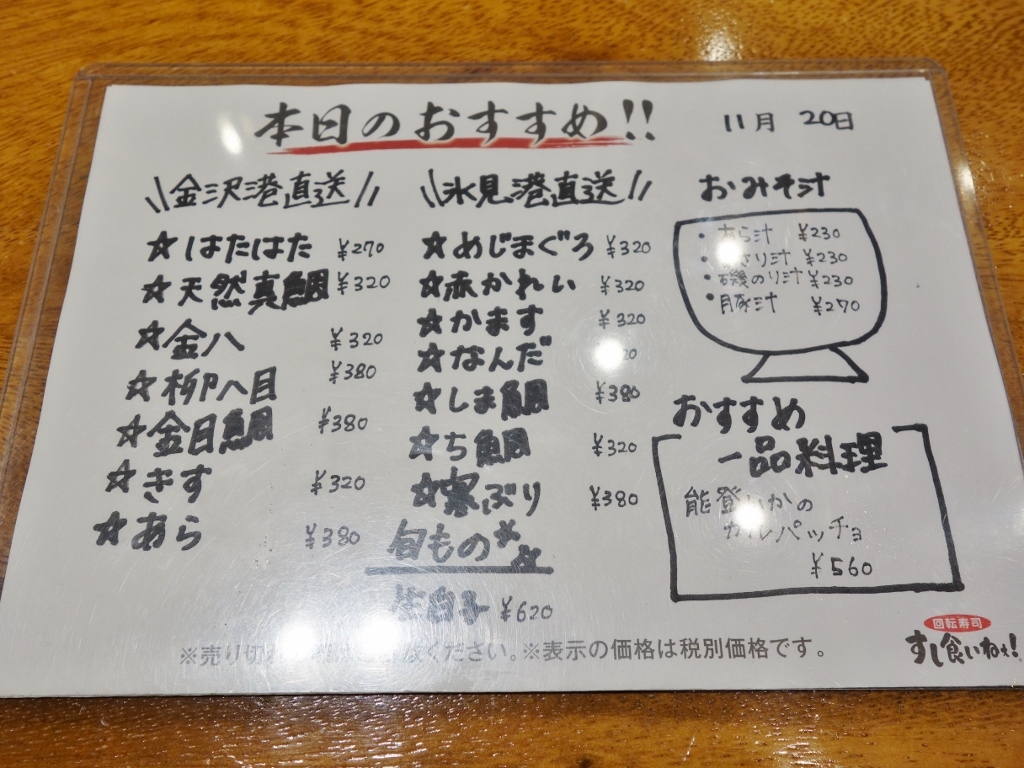 本日のおすすめ!!
11月 20日
\\金沢港直送//
☆はたはた ¥270
☆天然真鯛 ¥320
☆金八 ¥320
☆柳八目 ¥380
☆金目鯛 ¥380
☆きす ¥320
☆あら ¥380
\\氷見港直送//
☆めじまぐろ ¥320
☆赤かれい ¥320
☆かます ¥320
☆なんだ
☆しま鯛 ¥380
☆ち鯛 ¥320
☆寒ぶり ¥380
旬もの
生白子 ¥620
おみそ汁
・あら汁 ¥230
り汁 ¥230
・磯のり汁 ¥230
・豚汁 ¥270
おすすめ
一品料理
能登いかの
カルパッチョ
¥560
※売り切れ ください。※表示の価格は税別価格です。
回転寿司
すし食いねぇ!